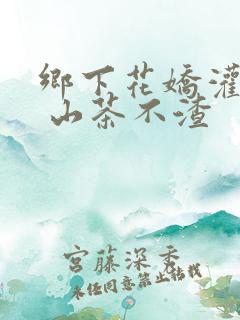 鄉下花嬌灌
山茶不渣
宮藤深秀
未任同意禁止轉載